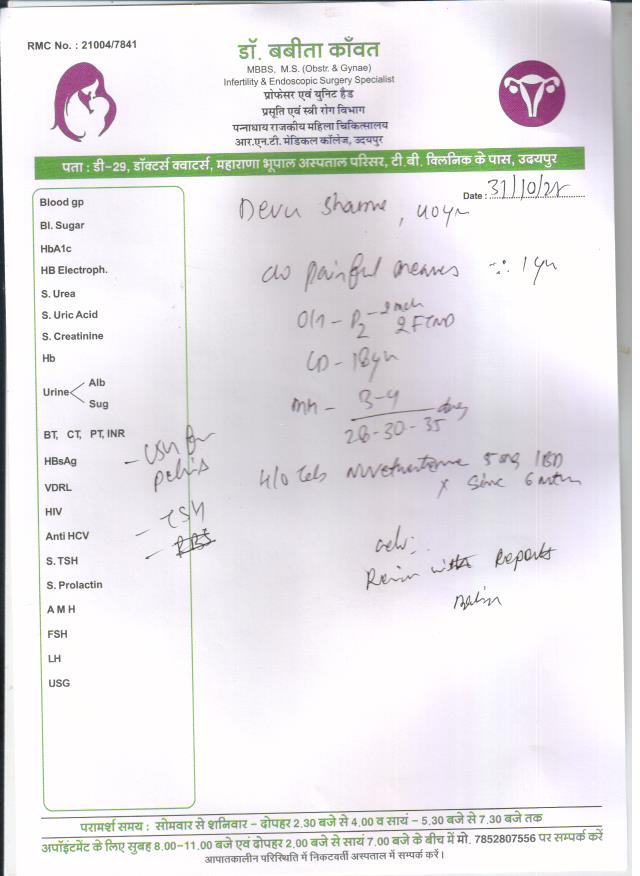 RMC No. : 21004/7841
डॉ. बबीता काँवत
MBBS, M.S. (Obstr. & Gynae)
Infertility & Endoscopic Surgery Specialist
प्रोफेसर एवं युनिट हैड
प्रसूति एवं स्त्री रोग विभाग
पन्नाधाय राजकीय महिला चिकित्सालय
आर.एन.टी. मेडिकल कॉलेज, उदयपुर
पता : डी-29, डॉक्टर्स क्वाटर्स, महाराणा भूपाल अस्पताल परिसर, टी.बी. क्लिनिक के पास, उदयपुर
Date : 31/10/
Blood gp
Bl. Sugar
HbA1c
HB Electroph.
S. Urea
S. Uric Acid
S. Creatinine
Hb
Urine Alb
Sug
BT, CT, PT, INR
HBsAg
VDRL
HIV
Anti HCV
S. TSH
S. Prolactin
A M H
FSH
LH
USG
- USG for
pelvis
- TSH
Sharma, 40yr
c/o painful menses 1 yr
O/H - P2
2 FTND
LD - 18yr
MH - 3-4 days
28-30-35
H/O Tab 5mg 1BD
x since 6
adv:
Review with Reports
परामर्श समय : सोमवार से शनिवार – दोपहर 2.30 बजे से 4.00 व सायं – 5.30 बजे से 7.30 बजे तक
अपॉइंटमेंट के लिए सुबह 8.00-11.00 बजे एवं दोपहर 2.00 बजे से सायं 7.00 बजे के बीच में मो. 7852807556 पर सम्पर्क करें
आपातकालीन परिस्थिति में निकटवर्ती अस्पताल में सम्पर्क करें।